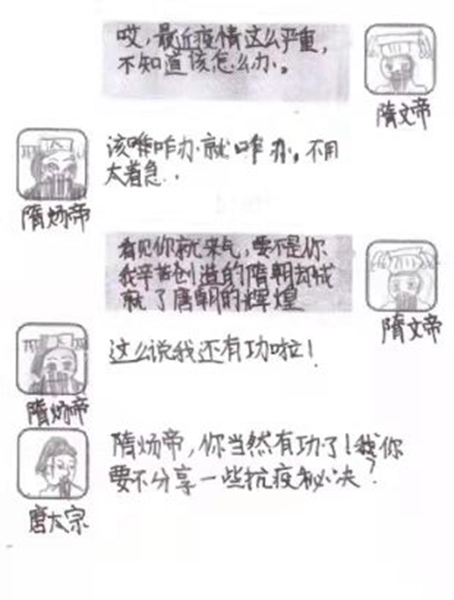 哎,最近疫情这么严重,
不知道该怎么办。
隋文帝
该咋办就咋办。不用
太着急..
隋炀帝
看见你就来气,要不是你
我辛苦创造的隋朝却成
就了唐朝的辉煌
隋文帝
这么说我还有功啦!
隋炀帝
隋炀帝,你当然有功了!我你
要不分享一些抗疫秘决?
唐太宗